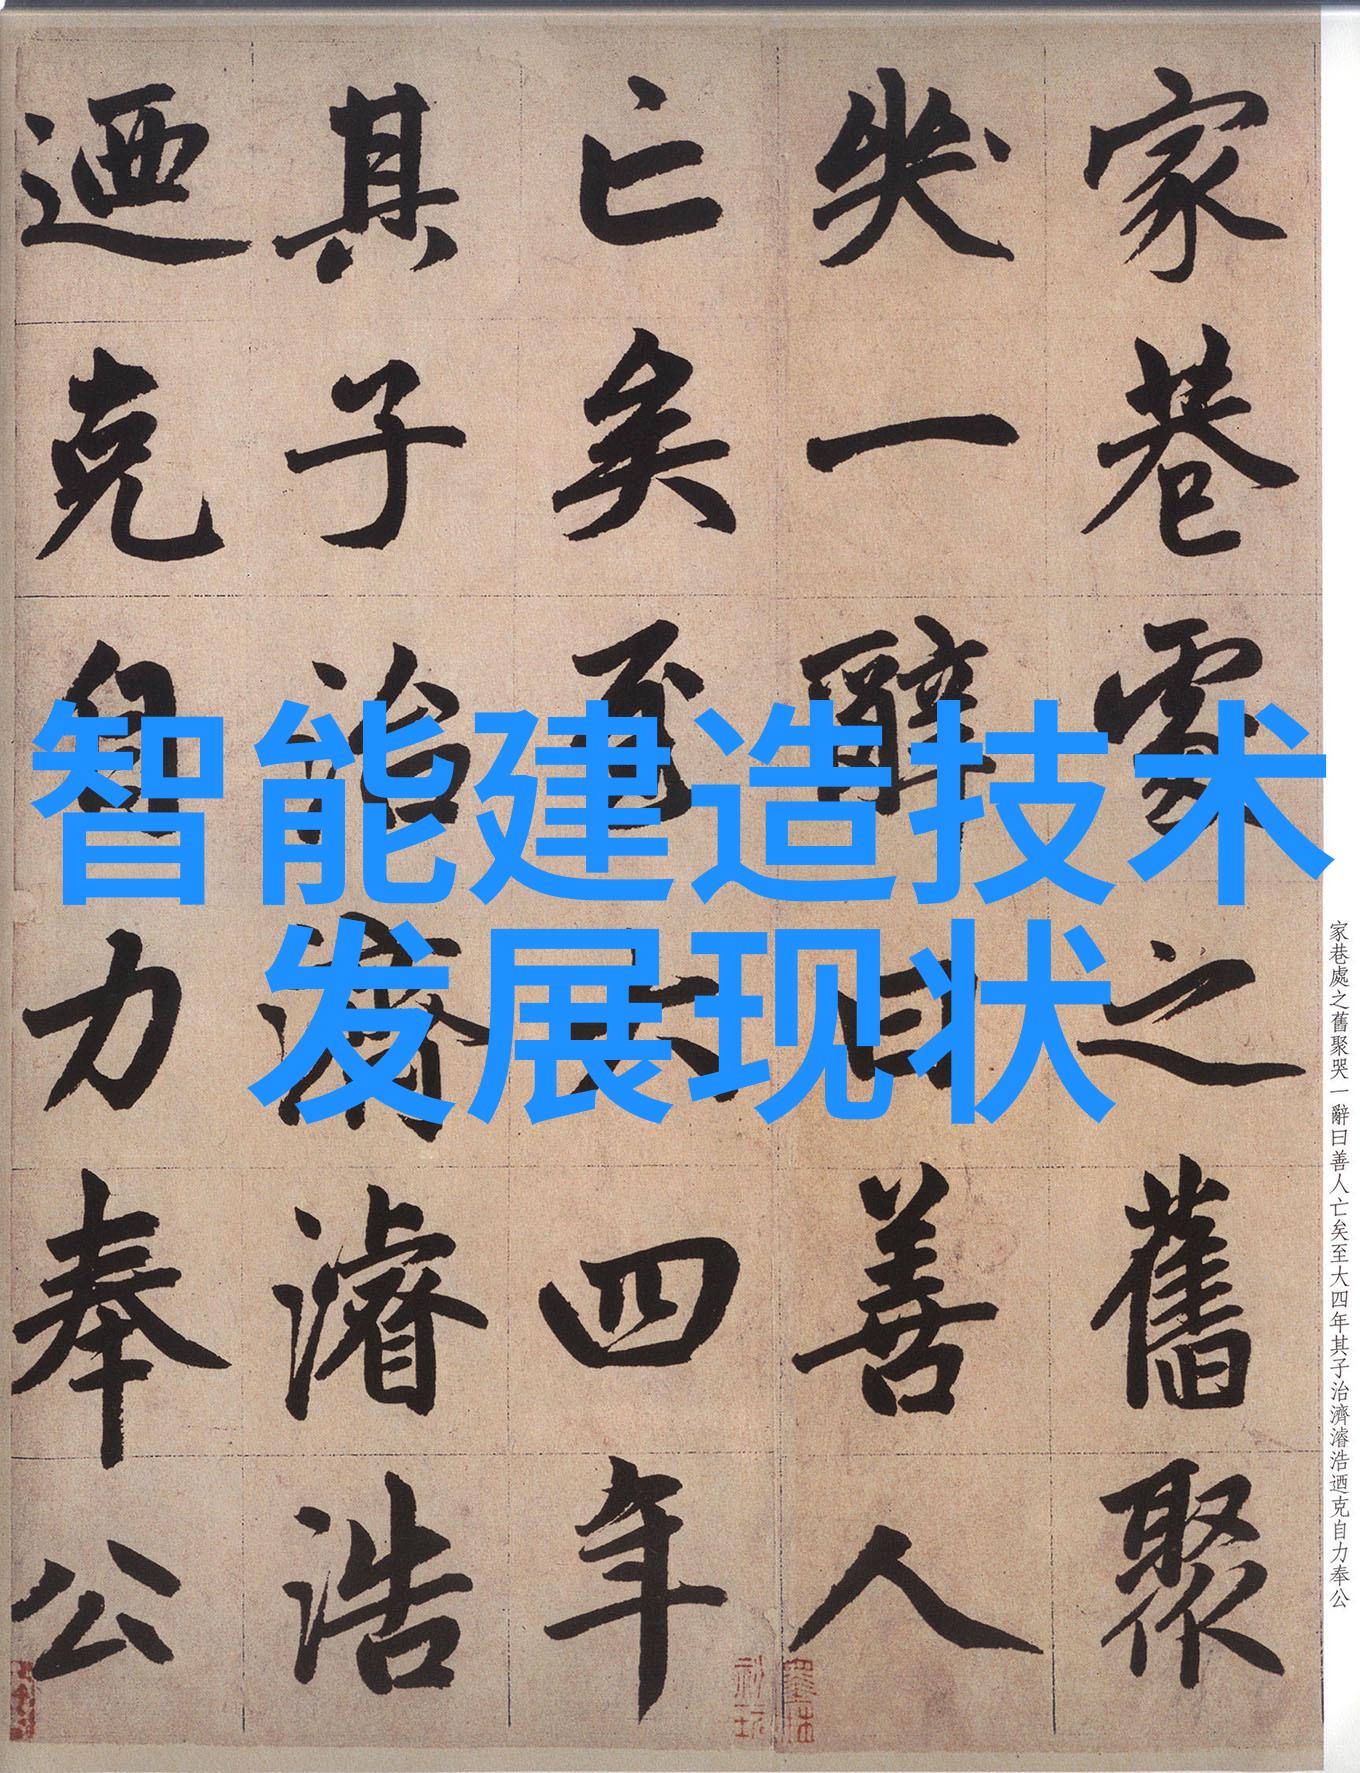 智能建造技术
发展现状
家巷處之舊聚
哭一辭曰善人
亡矣至大四年
其子治濟濬浩
迺克自力奉公
家巷處之舊聚哭一辭曰善人亡矣至大四年其子治濟濬浩迺克自力奉公
墨林
祕玩